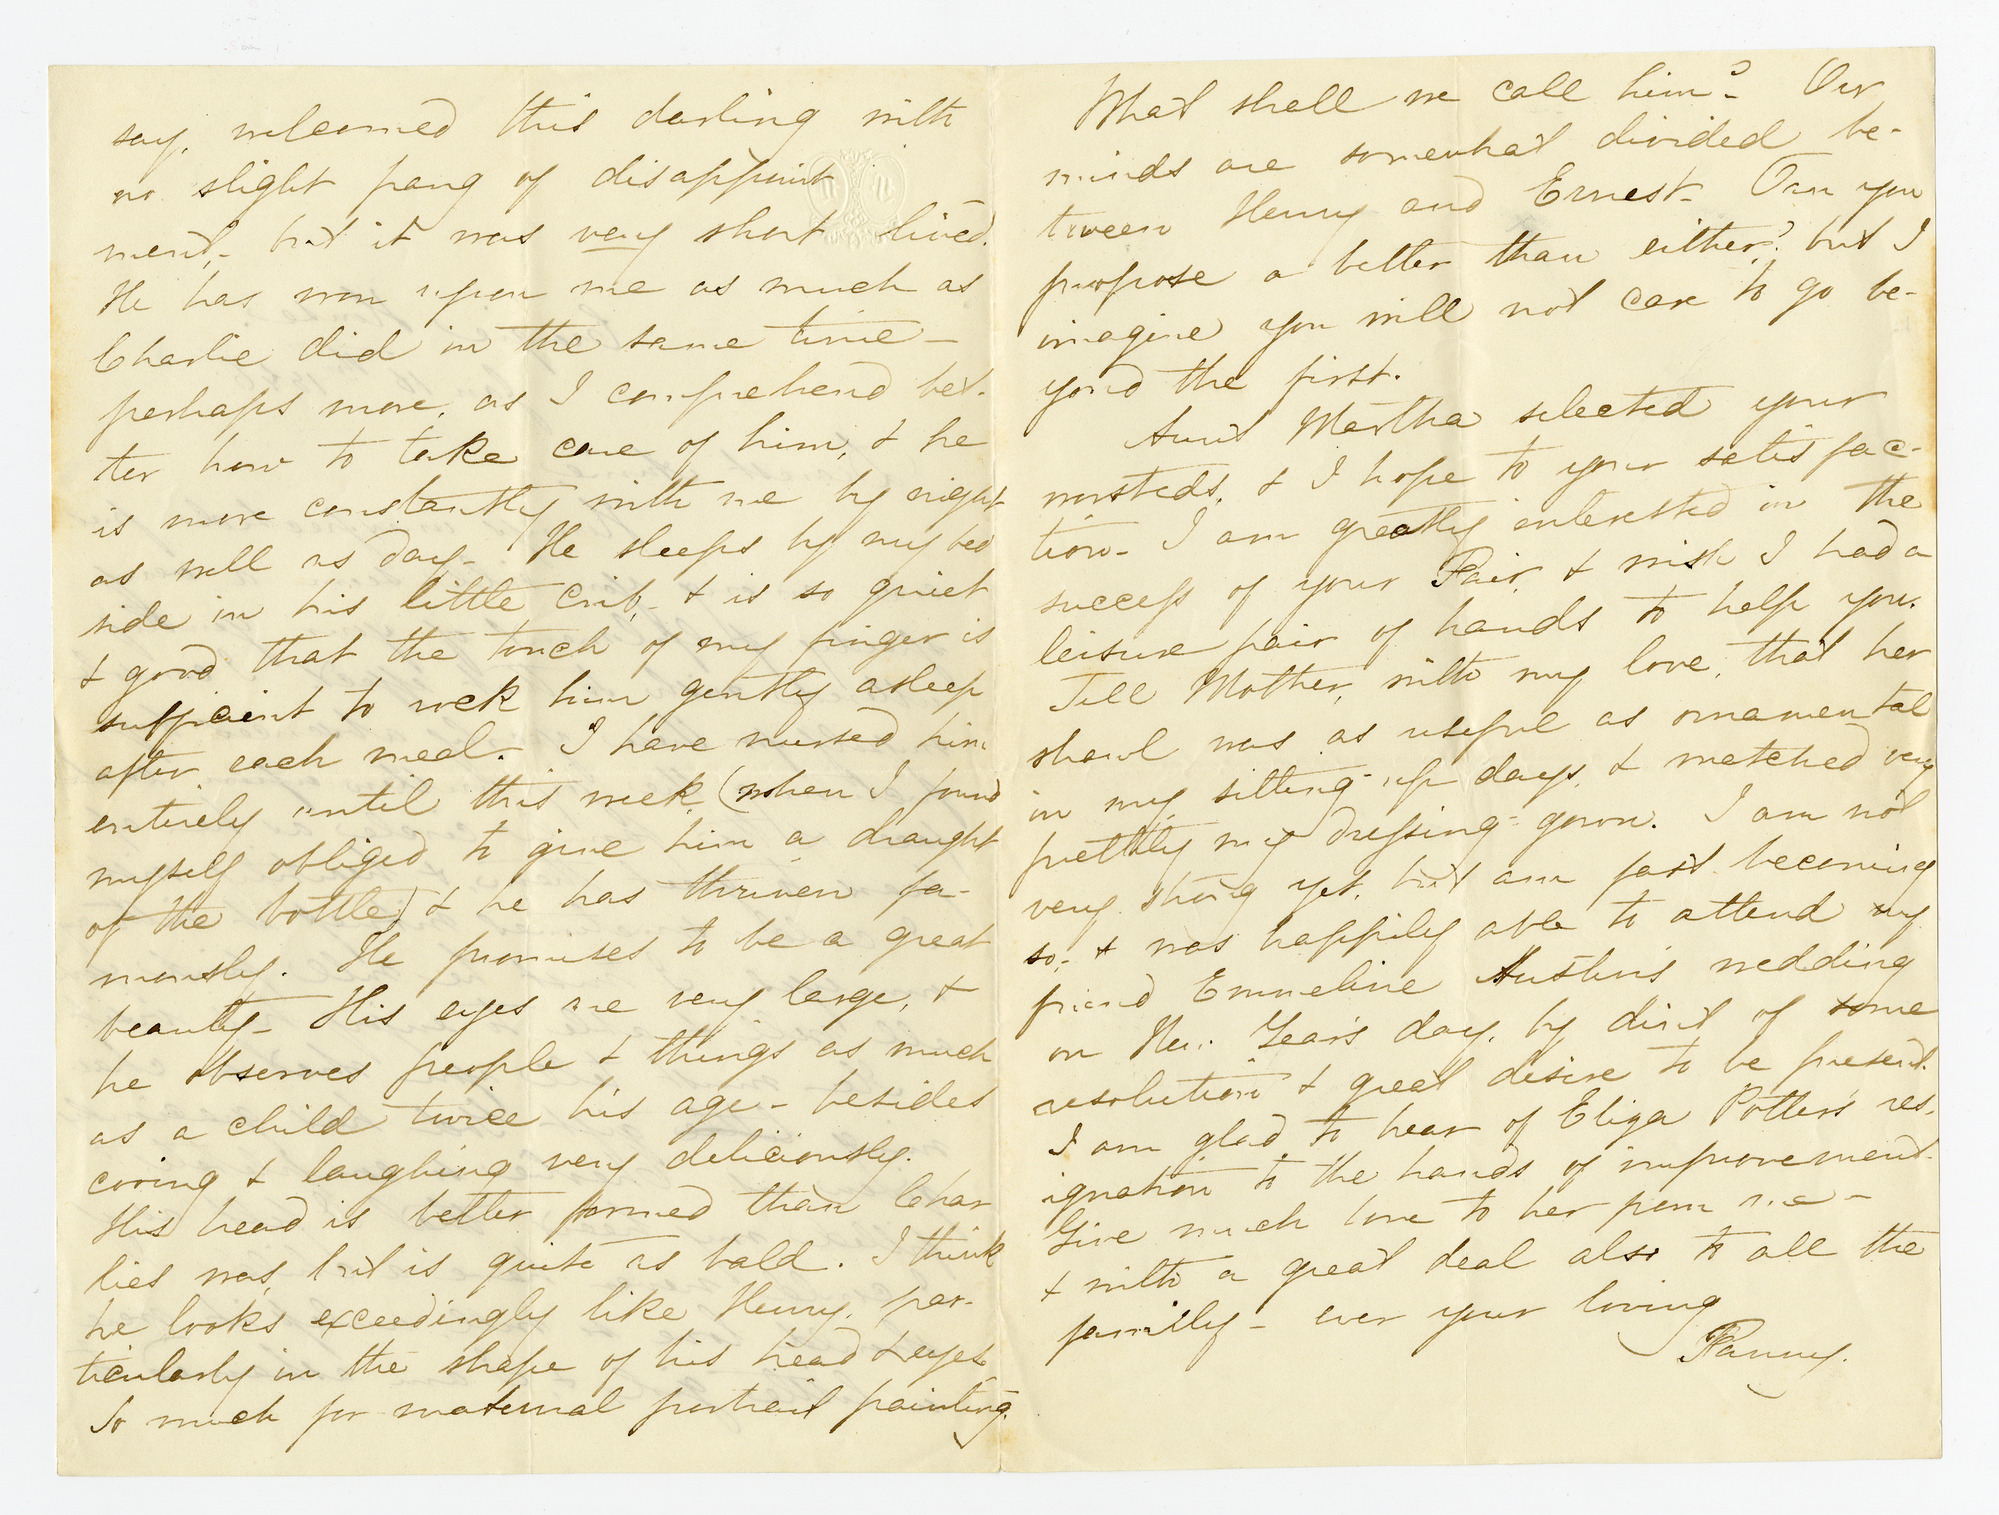 say, welcomed this darling with
no slight pang of disappoint
ment, - but it was very short lived.
He has won upon me as much as
Charlie did in the same time -
perhaps more, as I comprehend bet-
ter how to take care of him, & he
is more constantly with me by night
as well as day - He sleeps by my bed
side in his little crib, - & is so quiet
& good that the touch of my finger is
sufficient to rock him gently asleep
after each meal. - I have nursed him
entirely until this week, (when I found
myself obliged to give him a draught
of the bottle) & he has thriven fa-
mously. He promises to be a great
beauty - His eyes are very large, &
he observes people & things as much
as a child twice his age - besides
cooing & laughing very deliciously.
His head is better formed than Char
lies was, but is quite as bald. I think
he looks exceedingly like Henry, par-
ticularly in the shape of his head & eyes.
So much for maternal portrait painting.
What shall we call him? - Our
minds are somewhat divided be-
tween Henry and Ernest - Can you
propose a better than either? but I
imagine you will not care to go be-
yond the first.
Aunt Martha selected your
worsteds, & I hope to your satisfac-
tion - I am greatly interested in the
success of your Fair, & wish I had a
leisure pair of hands to help you.
Tell Mother, with my love, that her
shawl was as useful as ornamental
in my sitting-up days, & matched very
prettily my dressing-gown. I am not
very strong yet, but am fast becoming
so, - & was happily able to attend my
friend Emmeline Austin's wedding
on New Year's day, by dint of some
resolution & great desire to be present.
I am glad to hear of Eliza Potter's res-
ignation to the hands of improvement.
Give much love to her from me -
& with a great deal also to all the
family - ever your loving
Fanny.